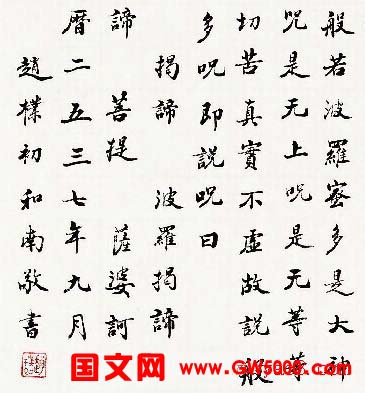 般若波羅蜜多是大神
呪是无上呪是无等等
切苦真實不虛故説般
多呪即説呪曰
揭諦 波羅揭諦
諦 菩提 薩婆訶
曆二五三七年九月
趙樸初和南敬書
国文网